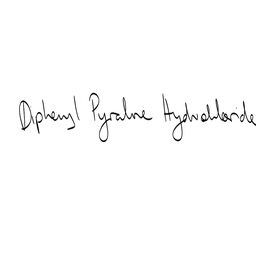 Diphenyl Pyraline Hydrochloride